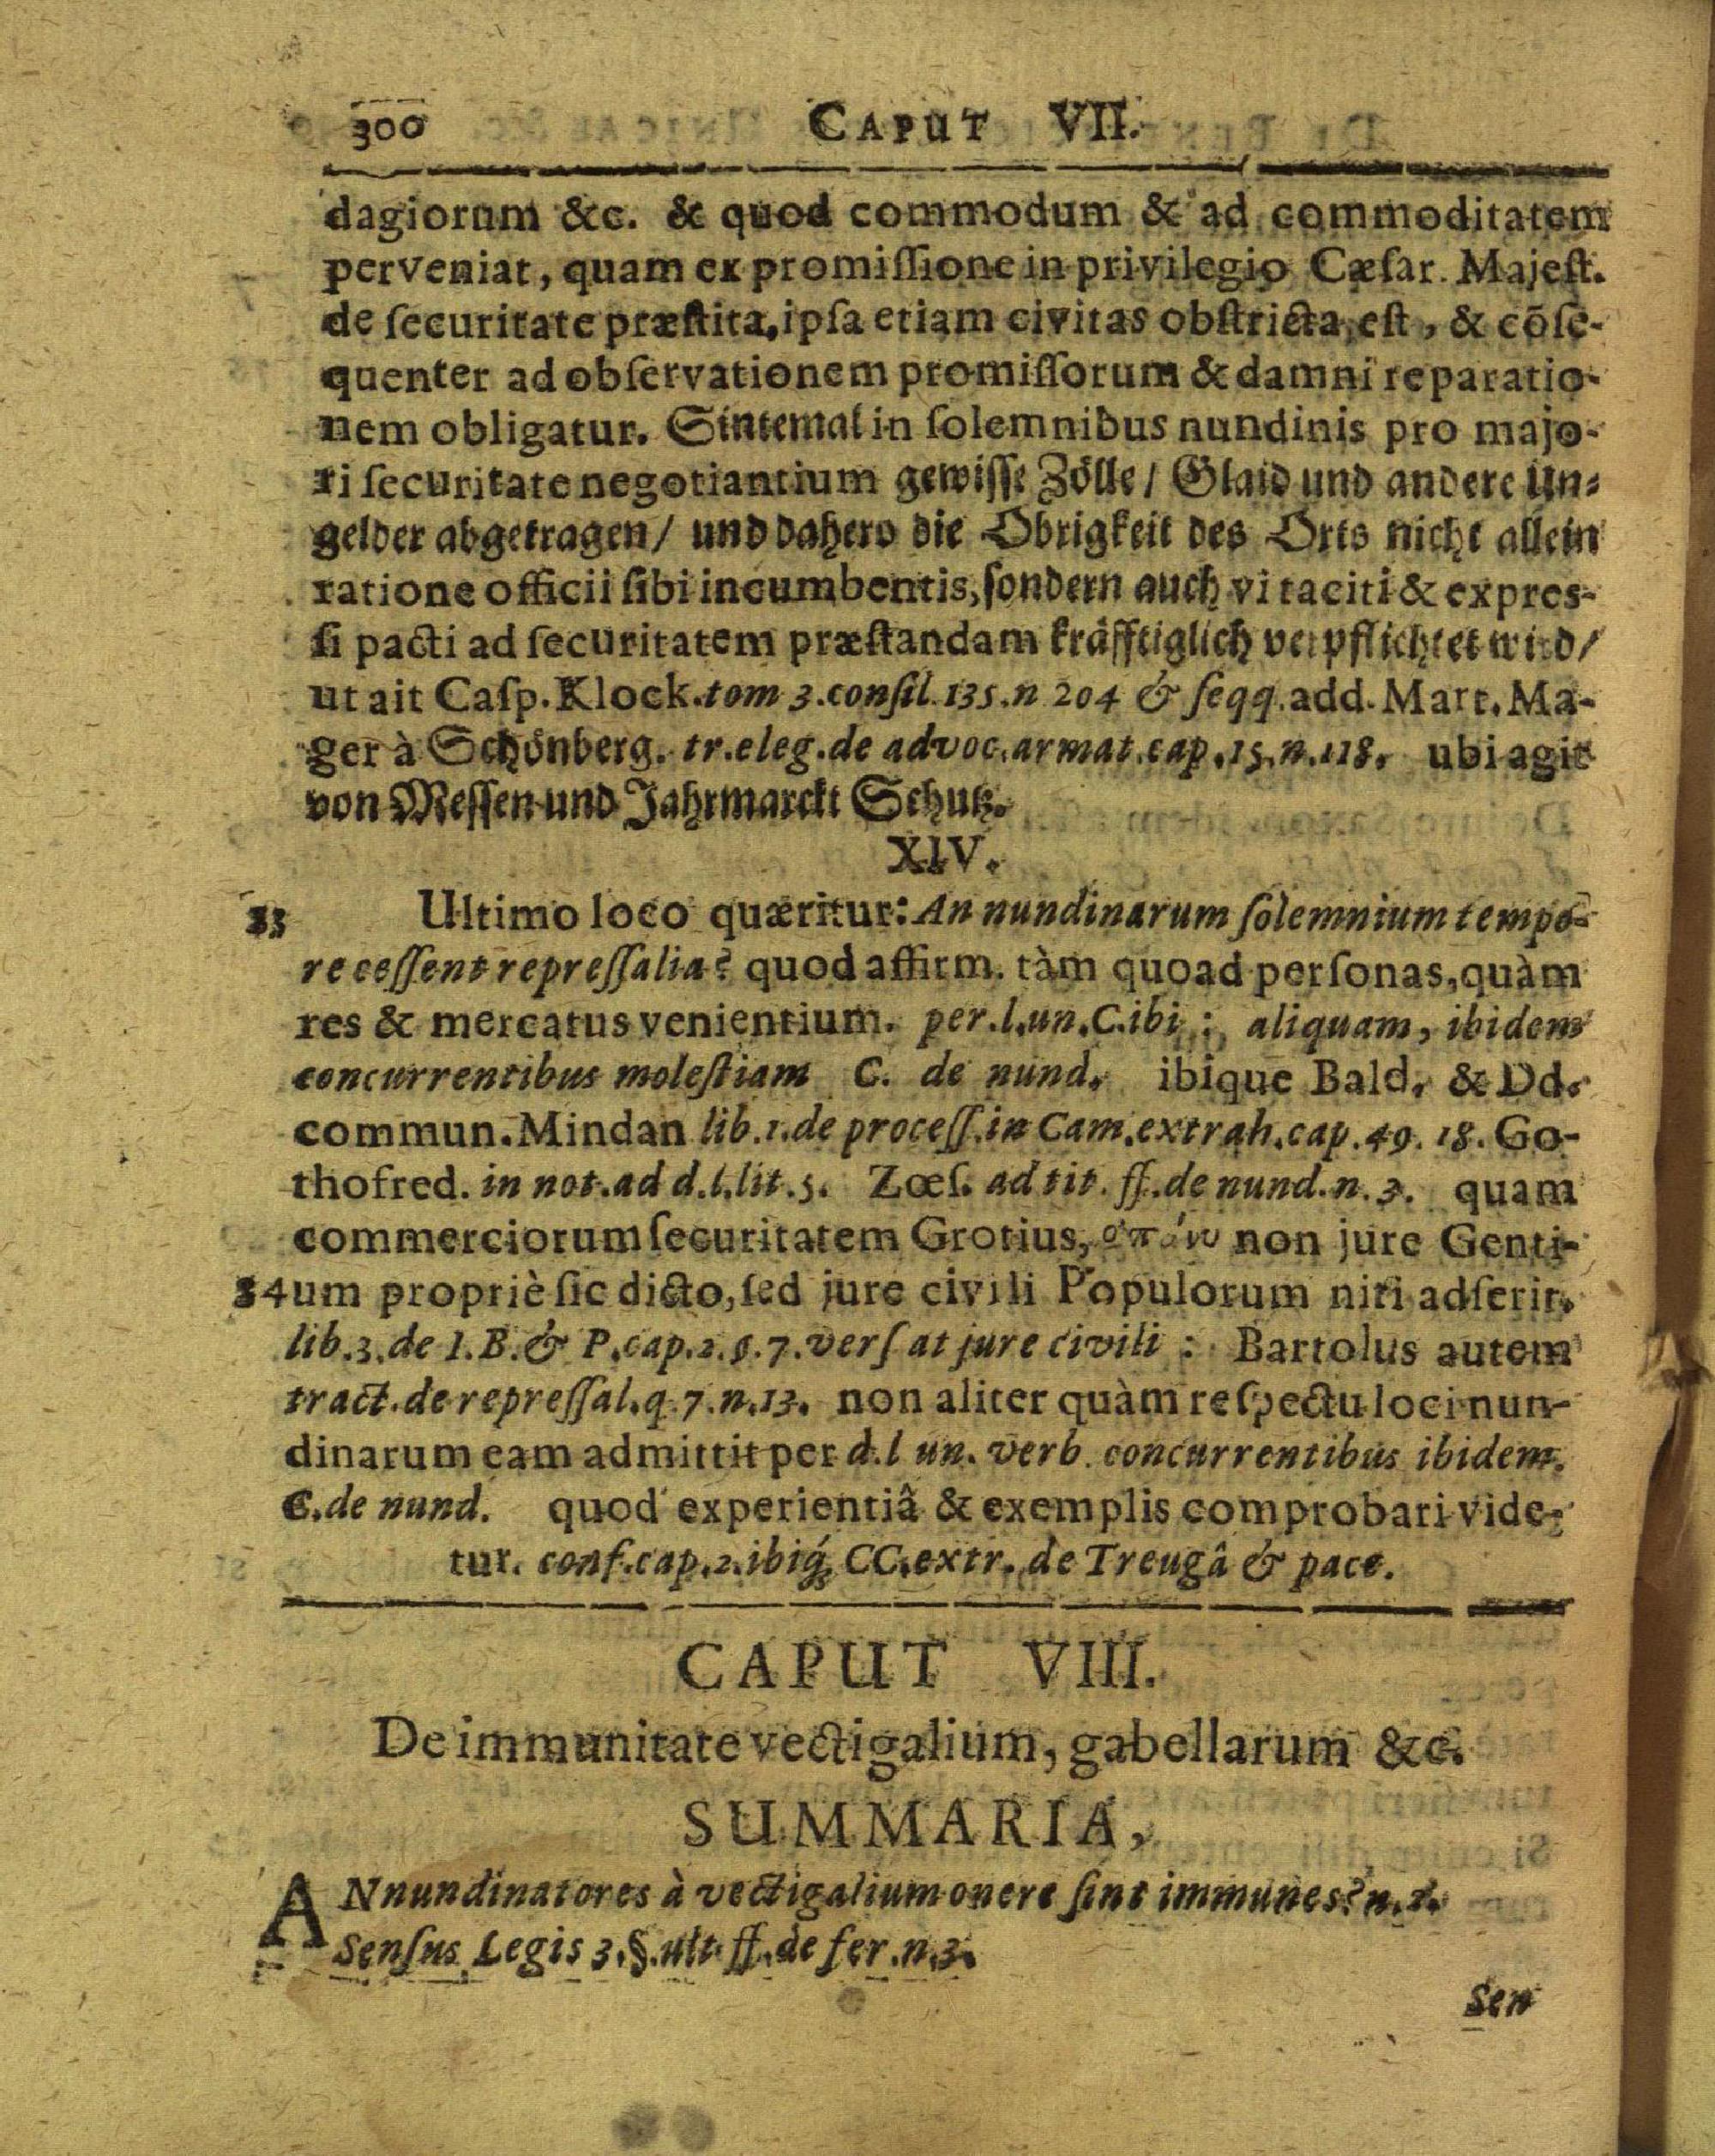 300 CAPUT VII.
dagiorum &c. & quod commodum & ad commoditatem
perveniat, quam ex promiſſione in privilegio Cæſar. Majeſt.
de ſecuritate præſtita, ipſa etiam civitas obſtricta eſt, & cõſe-
quenter ad obſervationem promiſſorum & damni reparatio-
nem obligatur. Sintemal in ſolemnibus nundinis pro majo-
ri ſecuritate negotiantium gewiſſe Zölle / Glaid und andere Un-
gelder abgetragen / und dahero die Obrigkeit des Orts nicht allein
ratione officii ſibi incumbentis, ſondern auch vi taciti & expreſ-
ſi pacti ad ſecuritatem præſtandam kräfftiglich verpflichtet wird /
ut ait Caſp. Klock. tom 3. conſil. 135. n 204 & ſeqq. add. Mart. Ma-
ger à Schönberg. tr. eleg. de advoc. armat. cap. 15. n. 118. ubi agit
von Meſſen und Jahrmarckt Schutz.
XIV.
83 Ultimo loco quæritur: An nundinarum ſolemnium tempo-
re ceſſent repreſſalia? quod affirm. tàm quoad perſonas, quàm
res & mercatus venientium. per. l. un. C. ibi: aliquam, ibidem
concurrentibus moleſtiam C. de nund. ibique Bald. & Dd.
commun. Mindan lib. 1. de proceſſ. in Cam. extrah. cap. 49. 18. Go-
thofred. in not. ad d. l. lit. 5. Zœſ. ad tit. ff. de nund. n. 3. quam
commerciorum ſecuritatem Grotius, non jure Genti-
84 um propriè ſic dicto, ſed jure civili Populorum niti adſerit.
lib. 3. de I. B. & P. cap. 2. §. 7. verſ at jure civili: Bartolus autem
tract. de repreſſal. q. 7. n. 13. non aliter quàm reſpectu loci nun-
dinarum eam admittit per d. l un. verb. concurrentibus ibidem.
C. de nund. quod experientiâ & exemplis comprobari vide-
tur. conf. cap. 2. ibiq́; CC. extr. de Treugâ & pace.
CAPUT VIII.
De immunitate vectigalium, gabellarum &c.
SUMMARIA,
AN nundinatores à vectigalium onere ſint immunes? n.
Senſus Legis 3. §. ult. ff. de fer. n. 3.
Sen